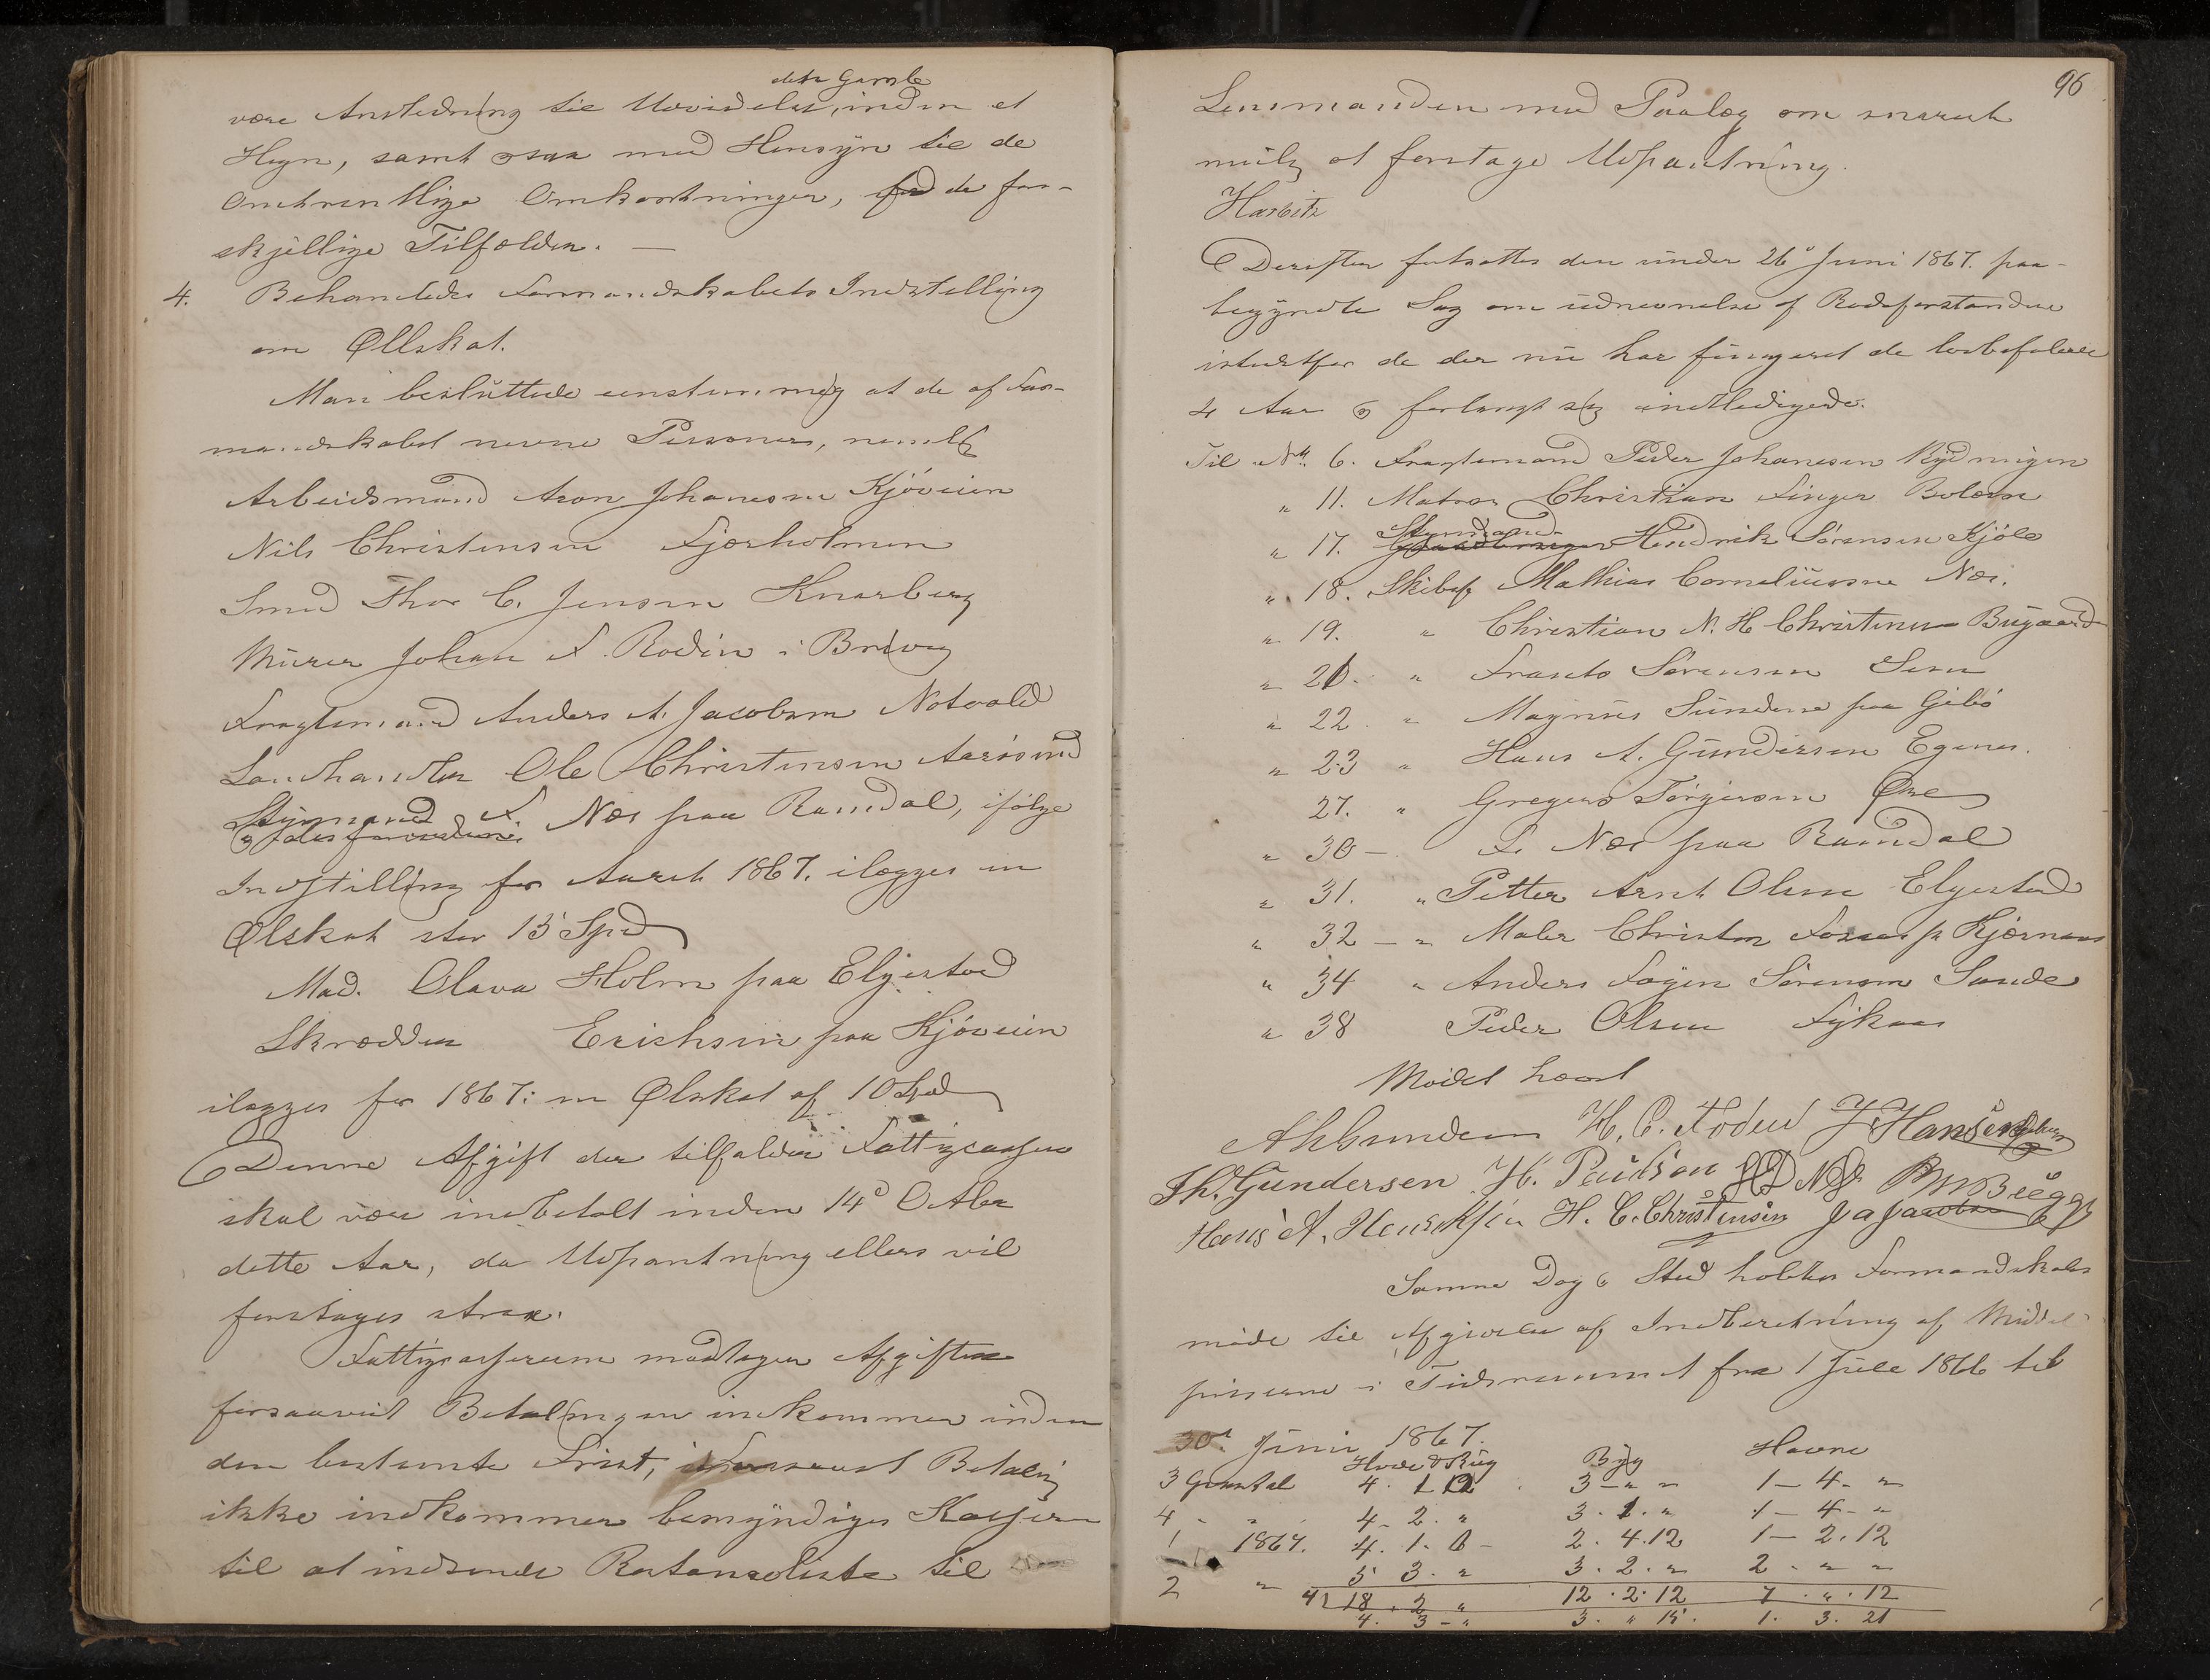 dette Gamle
være Anledning til Udvidelse, inden et
Hegn, samt ogsaa med Hensyn til de
omtrentlige Omkostninger, for de for-
skjellige Tilfælder. —
4. Behandledes Formandskabets Indstilling
om Ølskat.
Man besluttede eenstemmig at de af For-
mandskabet nevne Personer, nemlig
Arbeidsmand Aron Johannesen Kjøveien
Nils Christensen Fjærholmen
Smed Thor C. Jensen Knarberg
Murer Johan F. Rodin i Bredveg
Fragtemand Anders A. Jacobsen Notvold
Landhandler Ole Christensen Aarøsund
Styrmand F. Næs paa Ramdal, ifølge
Indstilling for Aaret 1867. ilægges en
Ølskat stor 15 Spd
Mad. Olava Holm paa Elgestad
Skrædder Erichsen paa Kjøveien
ilægges for 1867: en Ølskat af 10 Spd
Denne Afgift der tilfalder Fattigcassen
skal være indbetalt inden 14d Octbr
dette Aar, da Udpantning ellers vil
foretages strax.
Fattigcasserern modtager Afgiften
forsaavidt Betalingen indkommer inden
den bestemte Frist, Betaling
ikke indkommer bemyndiges Kasseren
til at indsende Restanceliste til
96
Lensmanden med Paalæg om snarest
mulig at foretage Udpantning.
Harbitz
Derefter fortsattes den under 26d Juni 1867. paa-
begyndte Sag om udnevnelse af Rodeforstandere
istedetfor de der nu har fungeret de lovbefalede
4 Aar og forlangt sig entledigede.
Til No. 6. Fragtemand Peder Johanesen Rydningen
„ 11. Matros Christian Finger Bolærne
„ 17. Styrmand Hendrik Sørensen Kjøle
„ 18. Skibsf Mathias Corneliussen Næs.
„ 19. „ Christian N. H. Christensen Bugaard
„ 21. „ Frants Sørensen Sem
„ 22. „ Magnus Sundene paa Gibø
„ 23 „ Hans A. Gundersen Egenes.
27. „ Gregers Torgersen Øre
„ 30 — F. Næs paa Ramdal
„ 31. „ Petter Arnt Olsen Elgestad
„ 32 — „ Maler Christen Foss p. Kjærnaas
„ 34 „ Anders Føyen Sørensen Sande
„ 38 Peder Olsen Fykaas
Mødet hævet
H. C. Foden J. Hansen
Th. Gundersen H. Paulsen Bugge
Hans A. Henriksen H. C. Christensen J A Jacobsen
Samme Dag & Sted holdtes Formandskabs
møde til Afgivelse af Indberetning af Middel-
priserne i Tidsrummet fra 1 Juli 1866 til
30d Juni 1867.
Hvede & Rug Byg Havre
3 Qvartal 4. 1 12 3 — „ „ 1 — 4. „
4 „ „ 4 — 2. „ 3. 1. „ 1 — 4 — „
1 1867. 4. 1. 6 — 2. 4. 12 1 — 2. 12
2 „ 5 3. „ 3. 2. „ 2 — „ „
4) 18. 2 „ 12. 2. 12 7. „. 12
4. 3 — „ 3. „ 15. 1. 3. 21